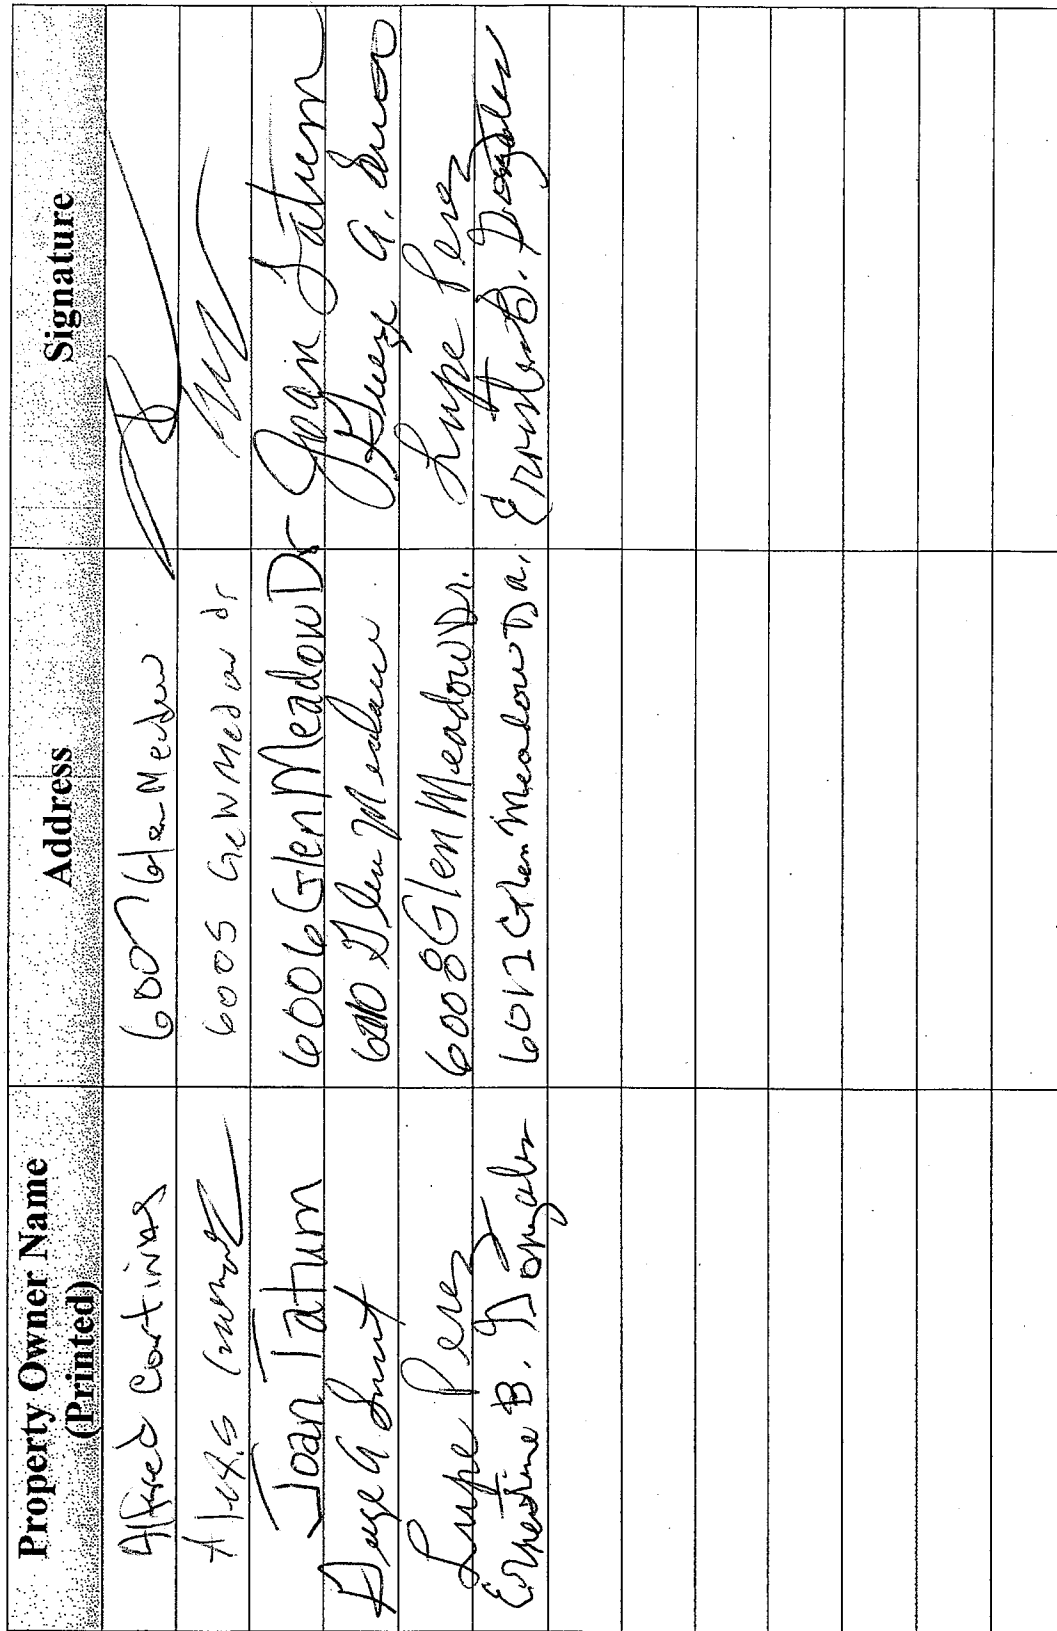 Property Owner Name (Printed) Address Signature
Alfred Cortinas 6007 Glen Meadow
Alexis 6005
Joan Tatum 6006 Glen Meadow Dr Joan Tatum
George A 6010 Glen Meadow George A.
Lupe Perez 6008 Glen Meadow Dr. Lupe Perez
Ernestine B. Gonzales 6012 Glen Meadow Dr. Ernestine B. Gonzales